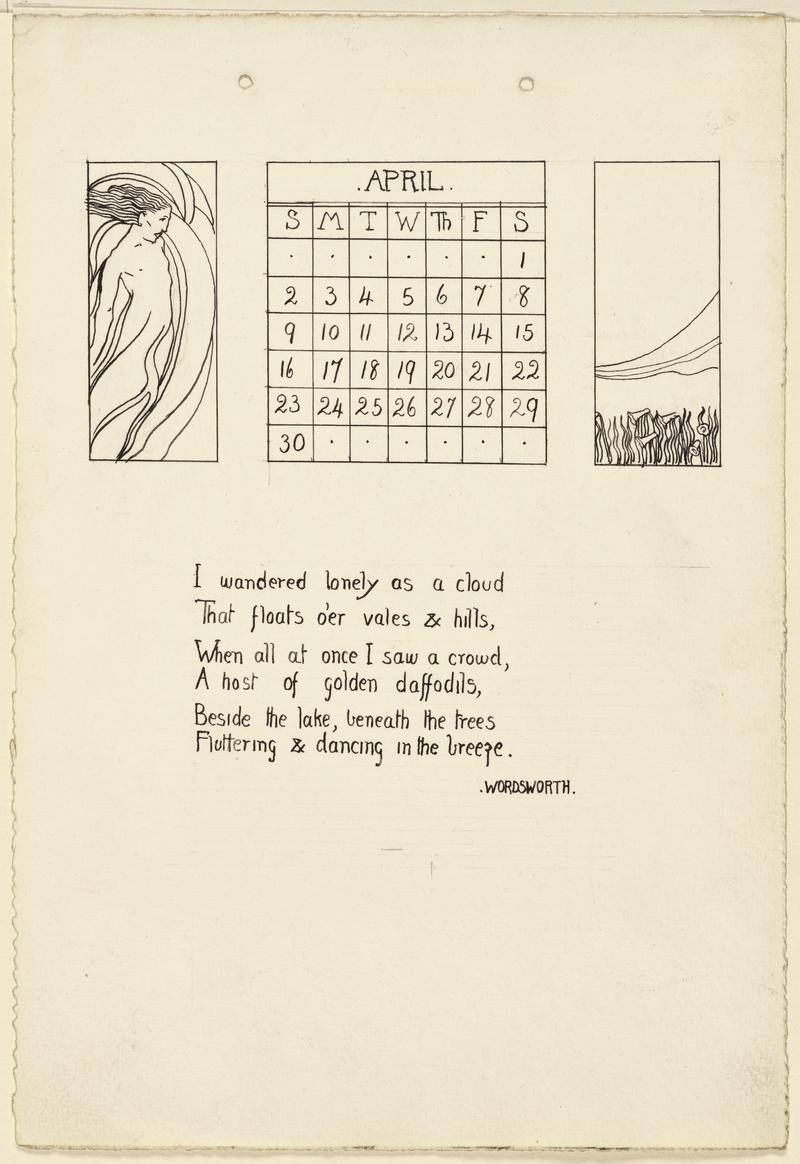 .APRIL.
S M T W Th F S
. . . . . . 1
2 3 4 5 6 7 8
9 10 11 12 13 14 15
16 17 18 19 20 21 22
23 24 25 26 27 28 29
30 . . . . . .
I wandered lonely as a cloud
That floats o'er vales & hills,
When all at once I saw a crowd,
A host of golden daffodils,
Beside the lake, beneath the trees
Fluttering & dancing in the breeze.
.WORDSWORTH.